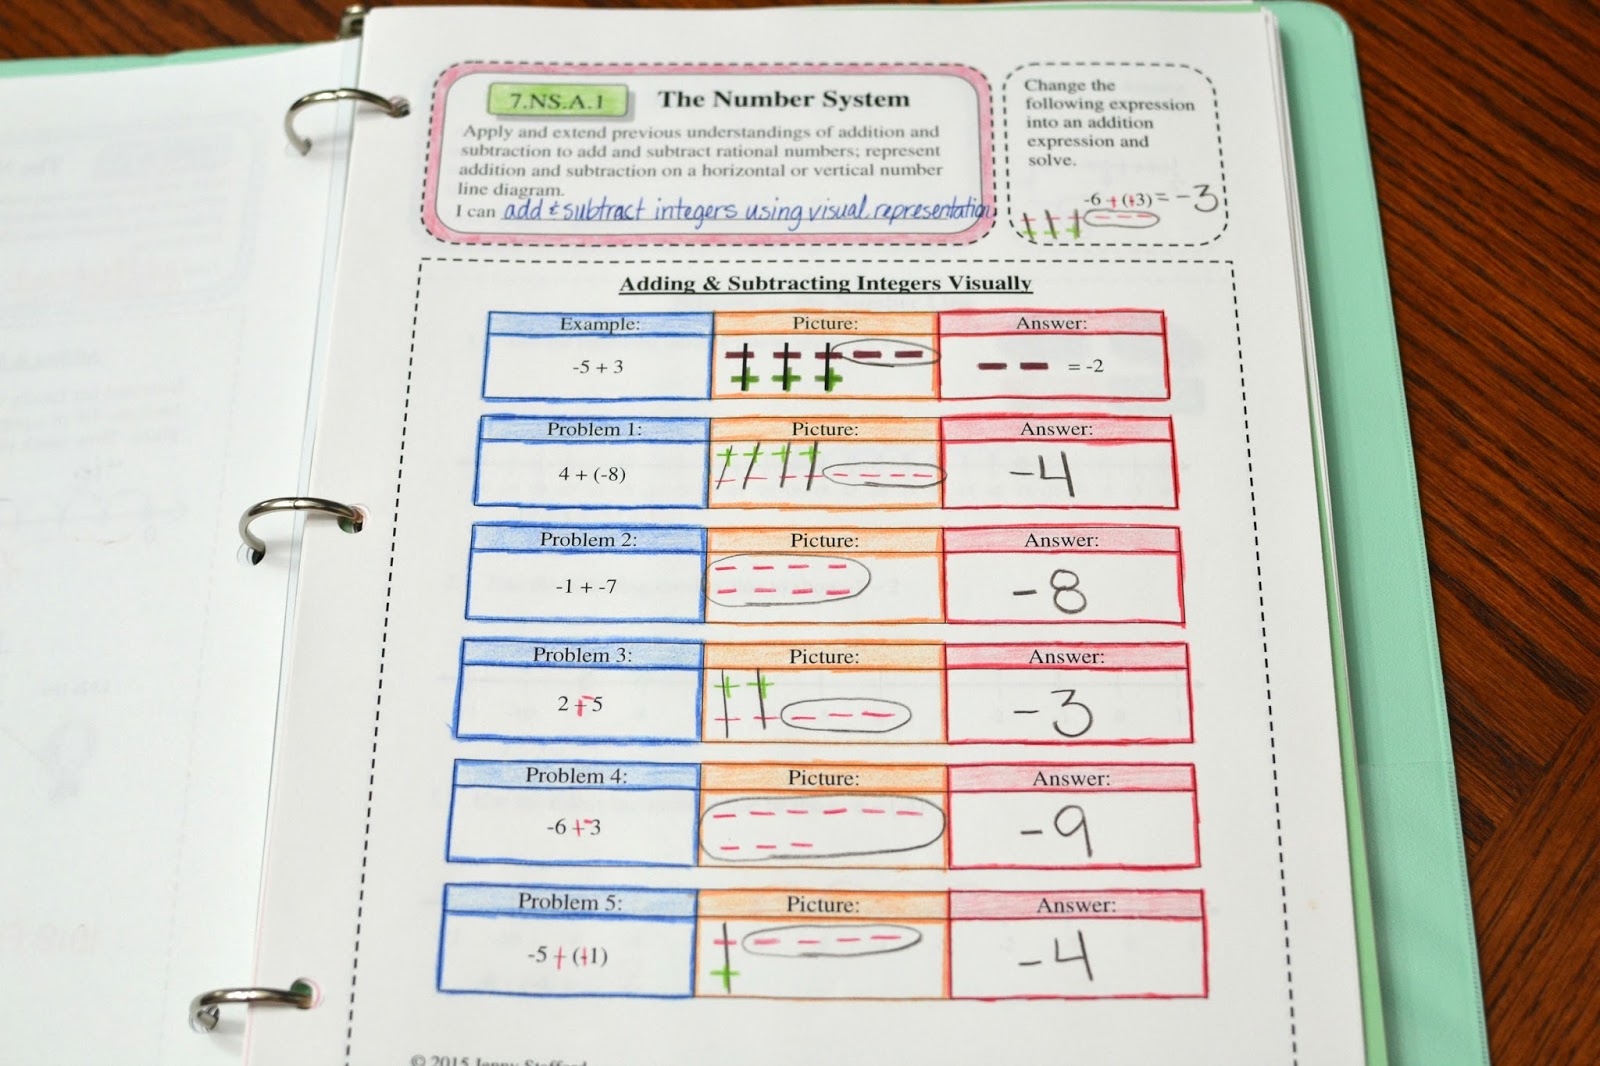 7.NS.A.1 The Number System
Apply and extend previous understandings of addition and
subtraction to add and subtract rational numbers; represent
addition and subtraction on a horizontal or vertical number
line diagram.
I can add & subtract integers using visual representation
Change the
following expression
into an addition
expression and
solve.
-6 + (+3) = -3
Adding & Subtracting Integers Visually
Example: Picture: Answer:
-5 + 3 = -2
Problem 1: Picture: Answer:
4 + (-8) -4
Problem 2: Picture: Answer:
-1 + -7 -8
Problem 3: Picture: Answer:
2 + -5 -3
Problem 4: Picture: Answer:
-6 + -3 -9
Problem 5: Picture: Answer:
-5 + (+1) -4
© 2015 Jenny Stafford